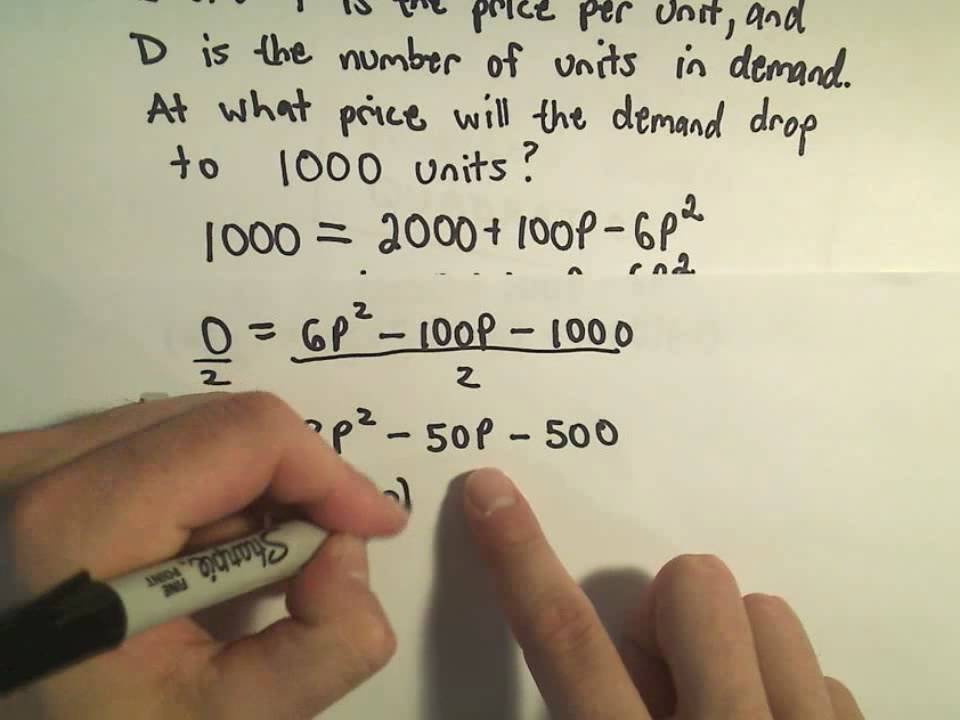 is the price per unit, and
D is the number of units in demand.
At what price will the demand drop
to 1000 units?
1000 = 2000 + 100P - 6P²
0 = 6P² - 100P - 1000
2 2
P² - 50P - 500
Sharpie
FINE
POINT